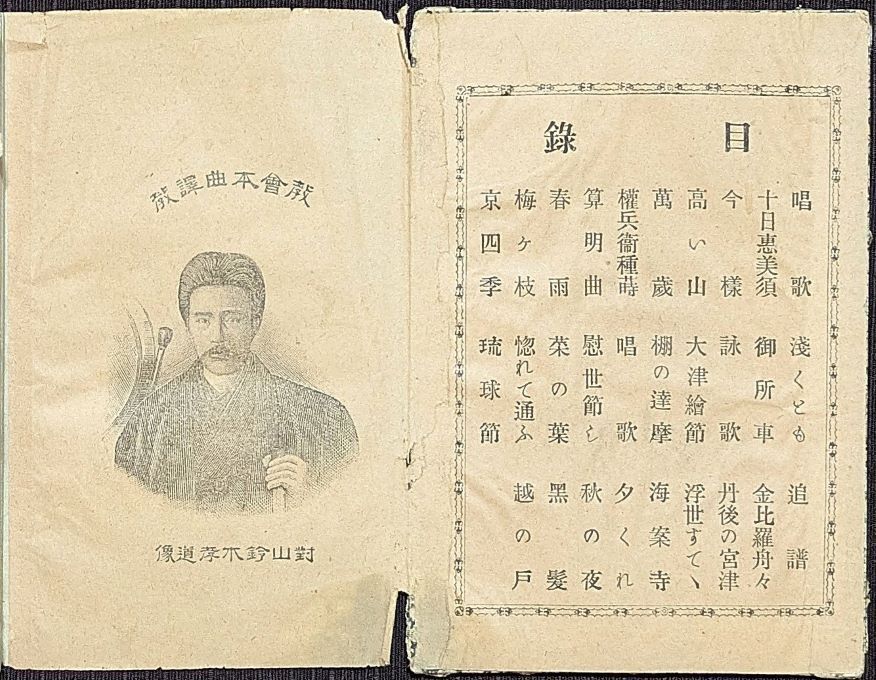 目錄
唱歌 淺くとも 追譜
十日惠美須 御所車 金比羅舟々
今樣 詠歌 丹後の宮津
高い山 大津繪節 浮世すてヽ
萬歲 棚の達摩 海案寺
權兵衞種蒔 唱歌 夕くれ
算明曲 慰世節 秋の夜
春雨 菜の葉 黑髮
梅ヶ枝 惚れて通ふ 越の戶
京四季 琉球節
敎會本曲譯敎
對山鈴木孝道像